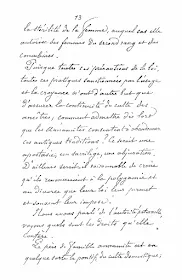 13
la stérilité de la femme, auquel cas elle
autorise des femmes du second rang et des
concubines.
Puisque toutes ces précautions de la loi,
toutes ces pratiques sanctionnées par l'usage
et la croyance n'ont d'autre but que
d'assurer la continuité du culte des
ancêtres, comment admettre dès lors
que les Annamites consentent à abandonner
ces antiques traditions ? Ce serait une
apostasie, un sacrilège, une abjuration.
D'ailleurs serait-il raisonnable de croire
qu'ils renonceraient à la polygamie et
au divorce que leur loi leur permet
et souvent leur impose.
Nous avons parlé de l'autorité paternelle,
voyons quels sont les droits qu'elle
confère.
Le père de famille annamite est en
quelque sorte le pontife du culte domestique,